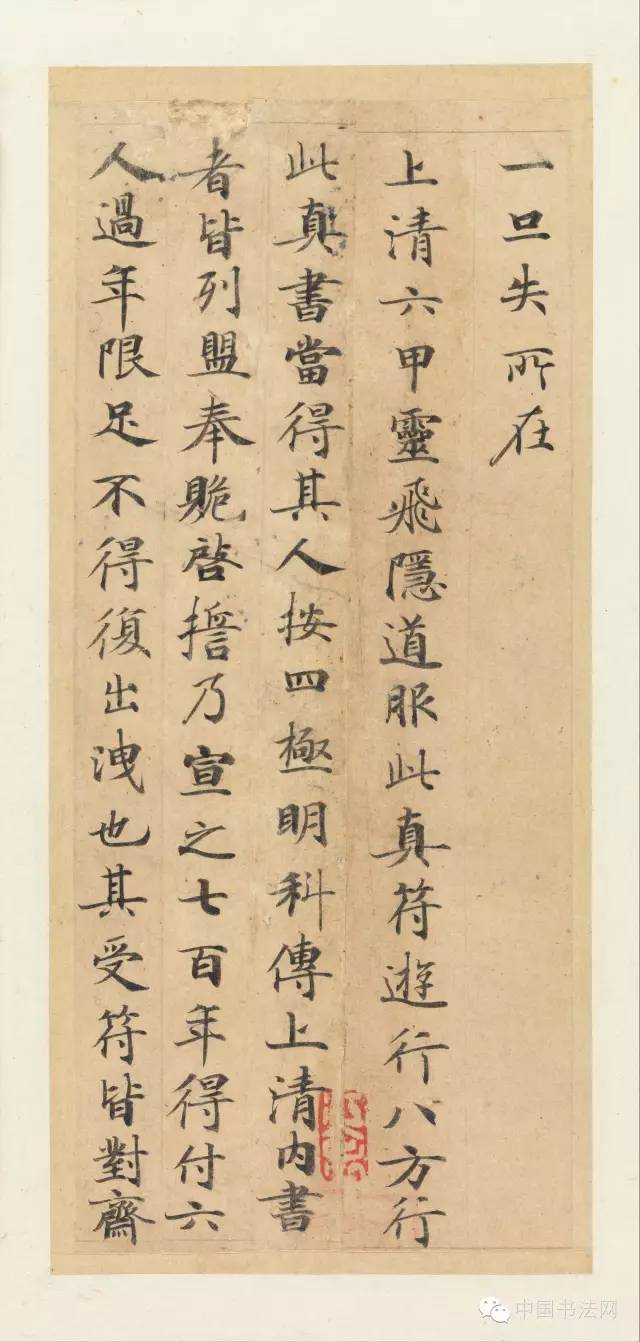 一旦失所在
上清六甲靈飛隱道服此真符遊行八方行
此真書當得其人按四極明科傳上清內書
者皆列盟奉䞈啓誓乃宣之七百年得付六
人過年限足不得復出洩也其受符皆對齋
中国书法网